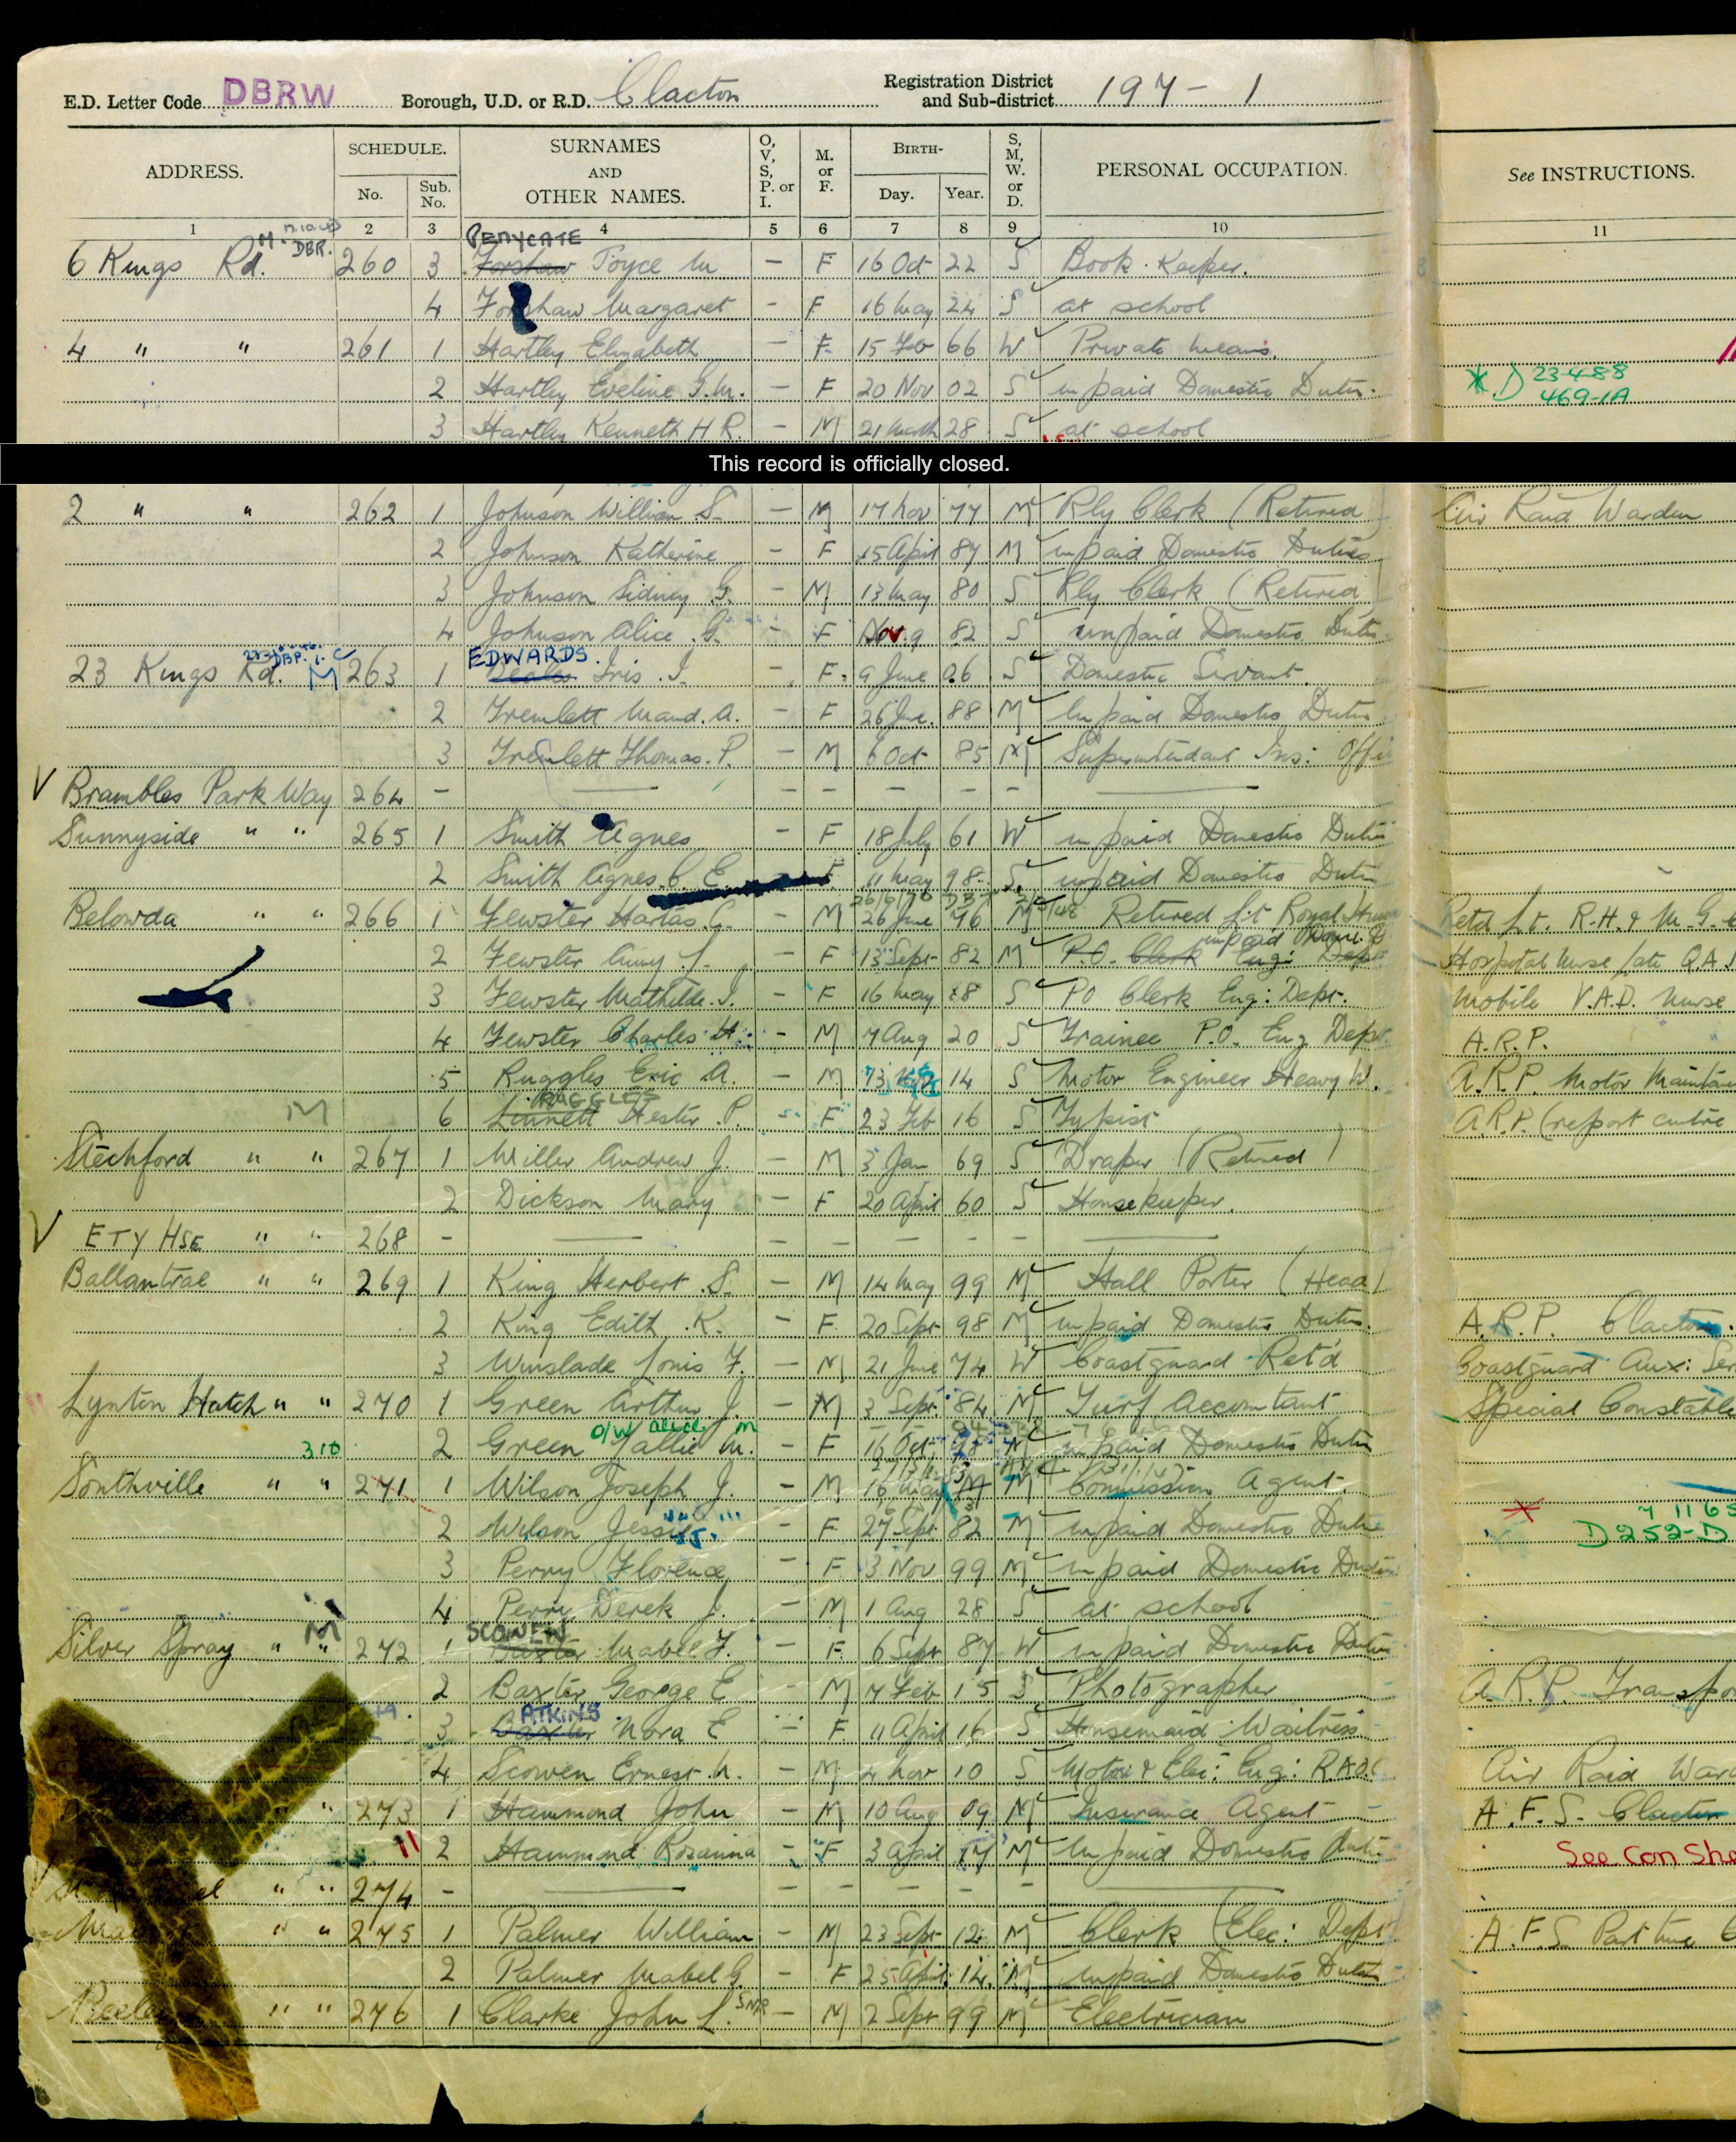 E.D. Letter Code DBRW Borough, U.D. or R.D. Clacton Registration District and Sub-district 197 - 1
ADDRESS. SCHEDULE. No. Sub. No. SURNAMES AND OTHER NAMES. O, V, S, P. or I. M. or F. BIRTH- Day. Year. S, M, W. or D. PERSONAL OCCUPATION. See INSTRUCTIONS.
1 2 3 4 5 6 7 8 9 10 11
M. DBR. PENYCATE
6 Kings Rd. 260 3 Forshaw Joyce M - F 16 Oct 22 S Book Keeper.
4 Forshaw Margaret - F 16 May 24 S at school
4 " " 261 1 Hartley Elizabeth - F 15 Feb 66 W Private Means.
2 Hartley Eveline G.M. - F 20 Nov 02 S unpaid Domestic Duties * D 23-4-88 469-1A
3 Hartley Kenneth H R. - M 21 March 28 S at school
This record is officially closed.
2 " " 262 1 Johnson William S. - M 17 Nov 77 M Rly Clerk (Retired) Air Raid Warden
2 Johnson Katherine - F 15 April 87 M unpaid Domestic Duties
3 Johnson Sidney G. - M 13 May 80 S Rly Clerk (Retired)
4 Johnson Alice G. - F Nov. 9 82 S unpaid Domestic Duties
EDWARDS.
23 Kings Rd. M 263 1 Iris I. F. 9 June 06 S Domestic Servant.
2 Tremlett Maud. A. - F 26 June 88 M Unpaid Domestic Duties
3 Tremlett Thomas. P. - M 6 Oct 85 M Superintendant Ins: Offi
V Brambles Park Way 264 - - - - - -
Sunnyside " " 265 1 Smith Agnes - F 18 July 61 W unpaid Domestic Duties
2 Smith Agnes. C. E. F 11 May 98 S. unpaid Domestic Duties
Belowda " " 266 1 Fewster Hartas. C. - M 26 June 76 M Retired Lt Royal Retd Lt. R.H. & M.G.
2 Fewster Amy L. - F 13 Sept 82 M P.O. Clerk Eng: Dept unpaid Dom. D Hospital Nurse late Q.A.
3 Fewster Mathilde. I. - F 16 May 18 S PO Clerk Eng: Dept. Mobile V.A.D. Nurse
4 Fewster Charles H. - M 7 Aug 20 S Trainee P.O. Eng Dept A.R.P.
5 Ruggles Eric A. - M 13 14 S Motor Engineer Heavy W. A.R.P. Motor Maintain
RAGGLES
M 6 Linnett Hester P. - F 23 Feb 16 S Typist A.R.P. (report centre
Stechford " " 267 1 Miller Andrew J. - M 3 Jan 69 S Draper (Retired)
2 Dickson Mary - F 20 April 60 S Housekeeper.
V ETY HSE " " 268 - - - - - -
Ballantrae " " 269 1 King Herbert S. - M 14 May 99 M Hall Porter (Head)
2 King Edith K. - F. 20 Sept 98 M unpaid Domestic Duties. A.R.P. Clacton.
3 Winslade Louis F. - M 21 June 74 W Coastguard Ret'd Coastguard Aux: Ser
Lynton Hatch " " 270 1 Green Arthur J. - M 3 Sept 84 M Turf Accountant Special Constable
O/W ALICE M
310 2 Green Tallie M. - F 16 Oct 98 M unpaid Domestic Duties
Southville " " 271 1 Wilson Joseph J. - M 16 May M Commission Agent.
2 Wilson Jessie - F 27 Sept 82 M unpaid Domestic Duties 7 11 65 D 252-D
3 Perry Florence - F 3 Nov 99 M unpaid Domestic Duties
4 Perry Derek J. - M 1 Aug 28 S at school
SCOWEN
Silver Spray " " M 272 1 Baxter Mabel F. F. 6 Sept 87 W unpaid Domestic Duties
2 Baxter George E - M 7 Feb 15 S Photographer A.R.P. Transpo
ATKINS
3 Baxter Nora E F. 11 April 16 S Housemaid Waitress
4 Scowen Ernest. W. - M. 4 Nov 10 S Motor & Elec: Eng: R.A.O.C Air Raid Ward
" " 273 1 Hammond John - M 10 Aug 09 M Insurance Agent A.F.S. Clacton
11 2 Hammond Rosanna - F 3 April 14 M Unpaid Domestic Duties See Con She
" " 274 - - - - - -
" " 275 1 Palmer William - M 23 Sept 12 M Clerk (Elec: Dept A.F.S. Part time
2 Palmer Mabel G. - F 25 April 14 M unpaid Domestic Duties
" " 276 1 Clarke John L. SNR - M 2 Sept 99 M Electrician